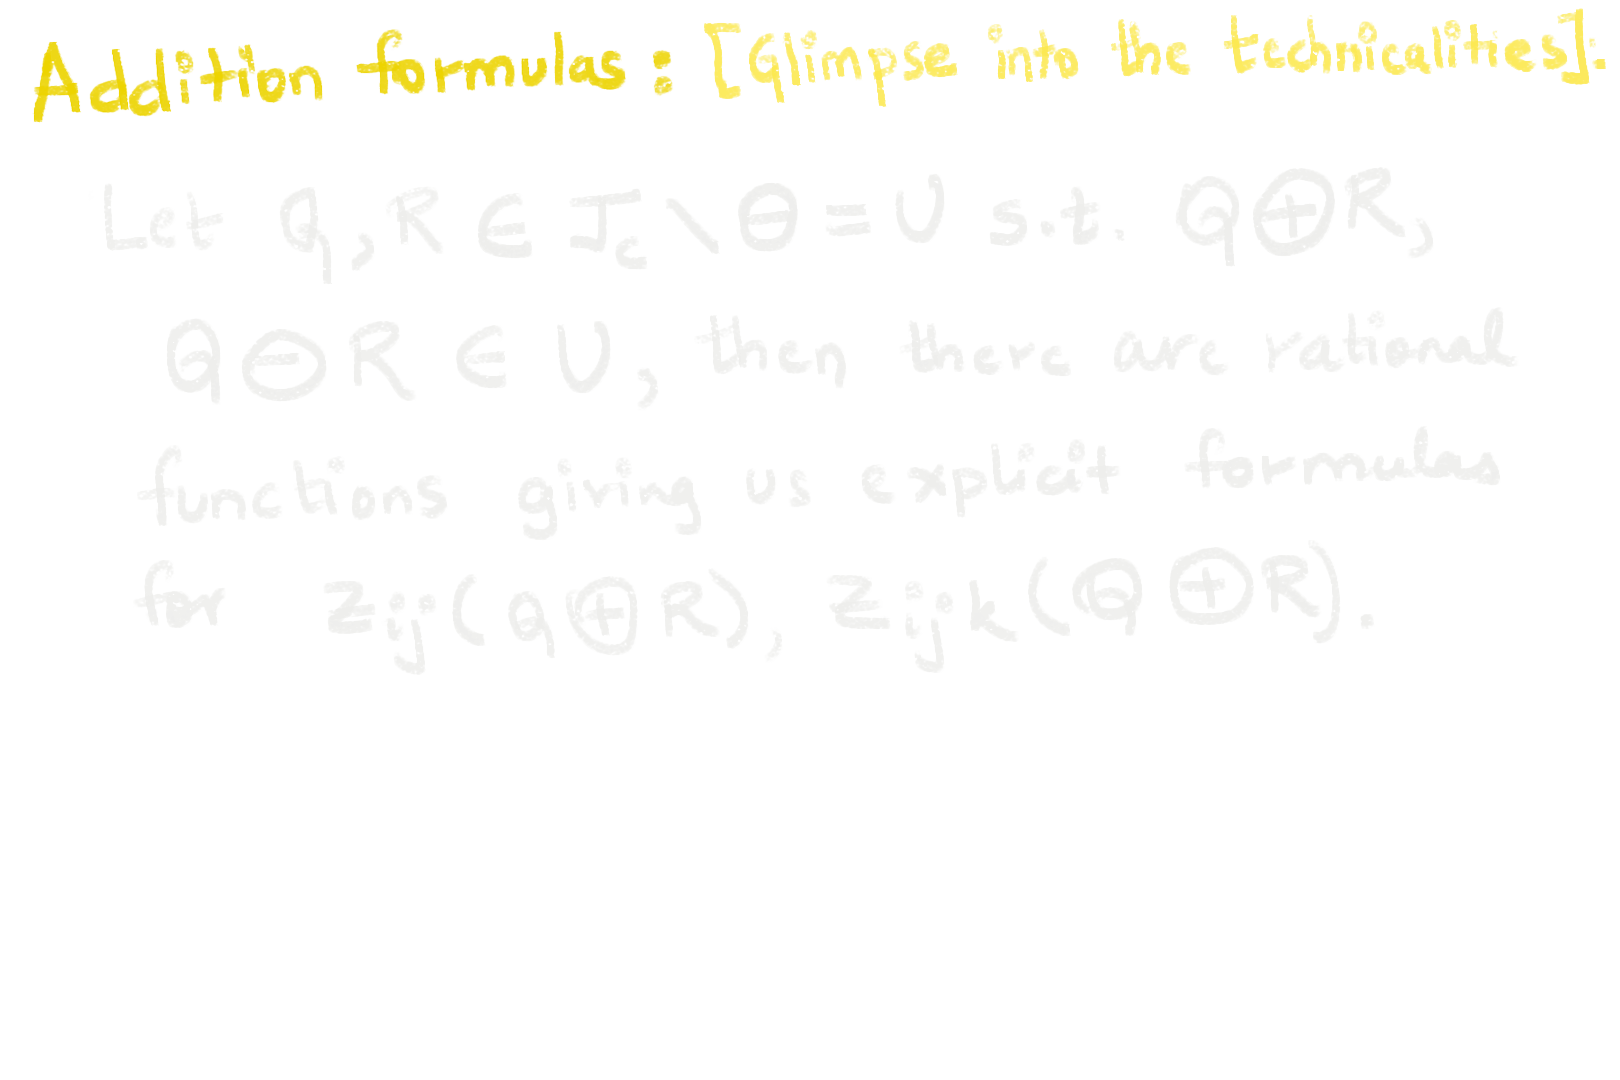 Addition formulas : [Glimpse into the technicalities].
Let Q, R ∈ J_C \ Θ = U s.t. Q ⊕ R,
Q ⊖ R ∈ U, then there are rational
functions giving us explicit formulas
for z_ij(Q ⊕ R), z_ijk(Q ⊕ R).